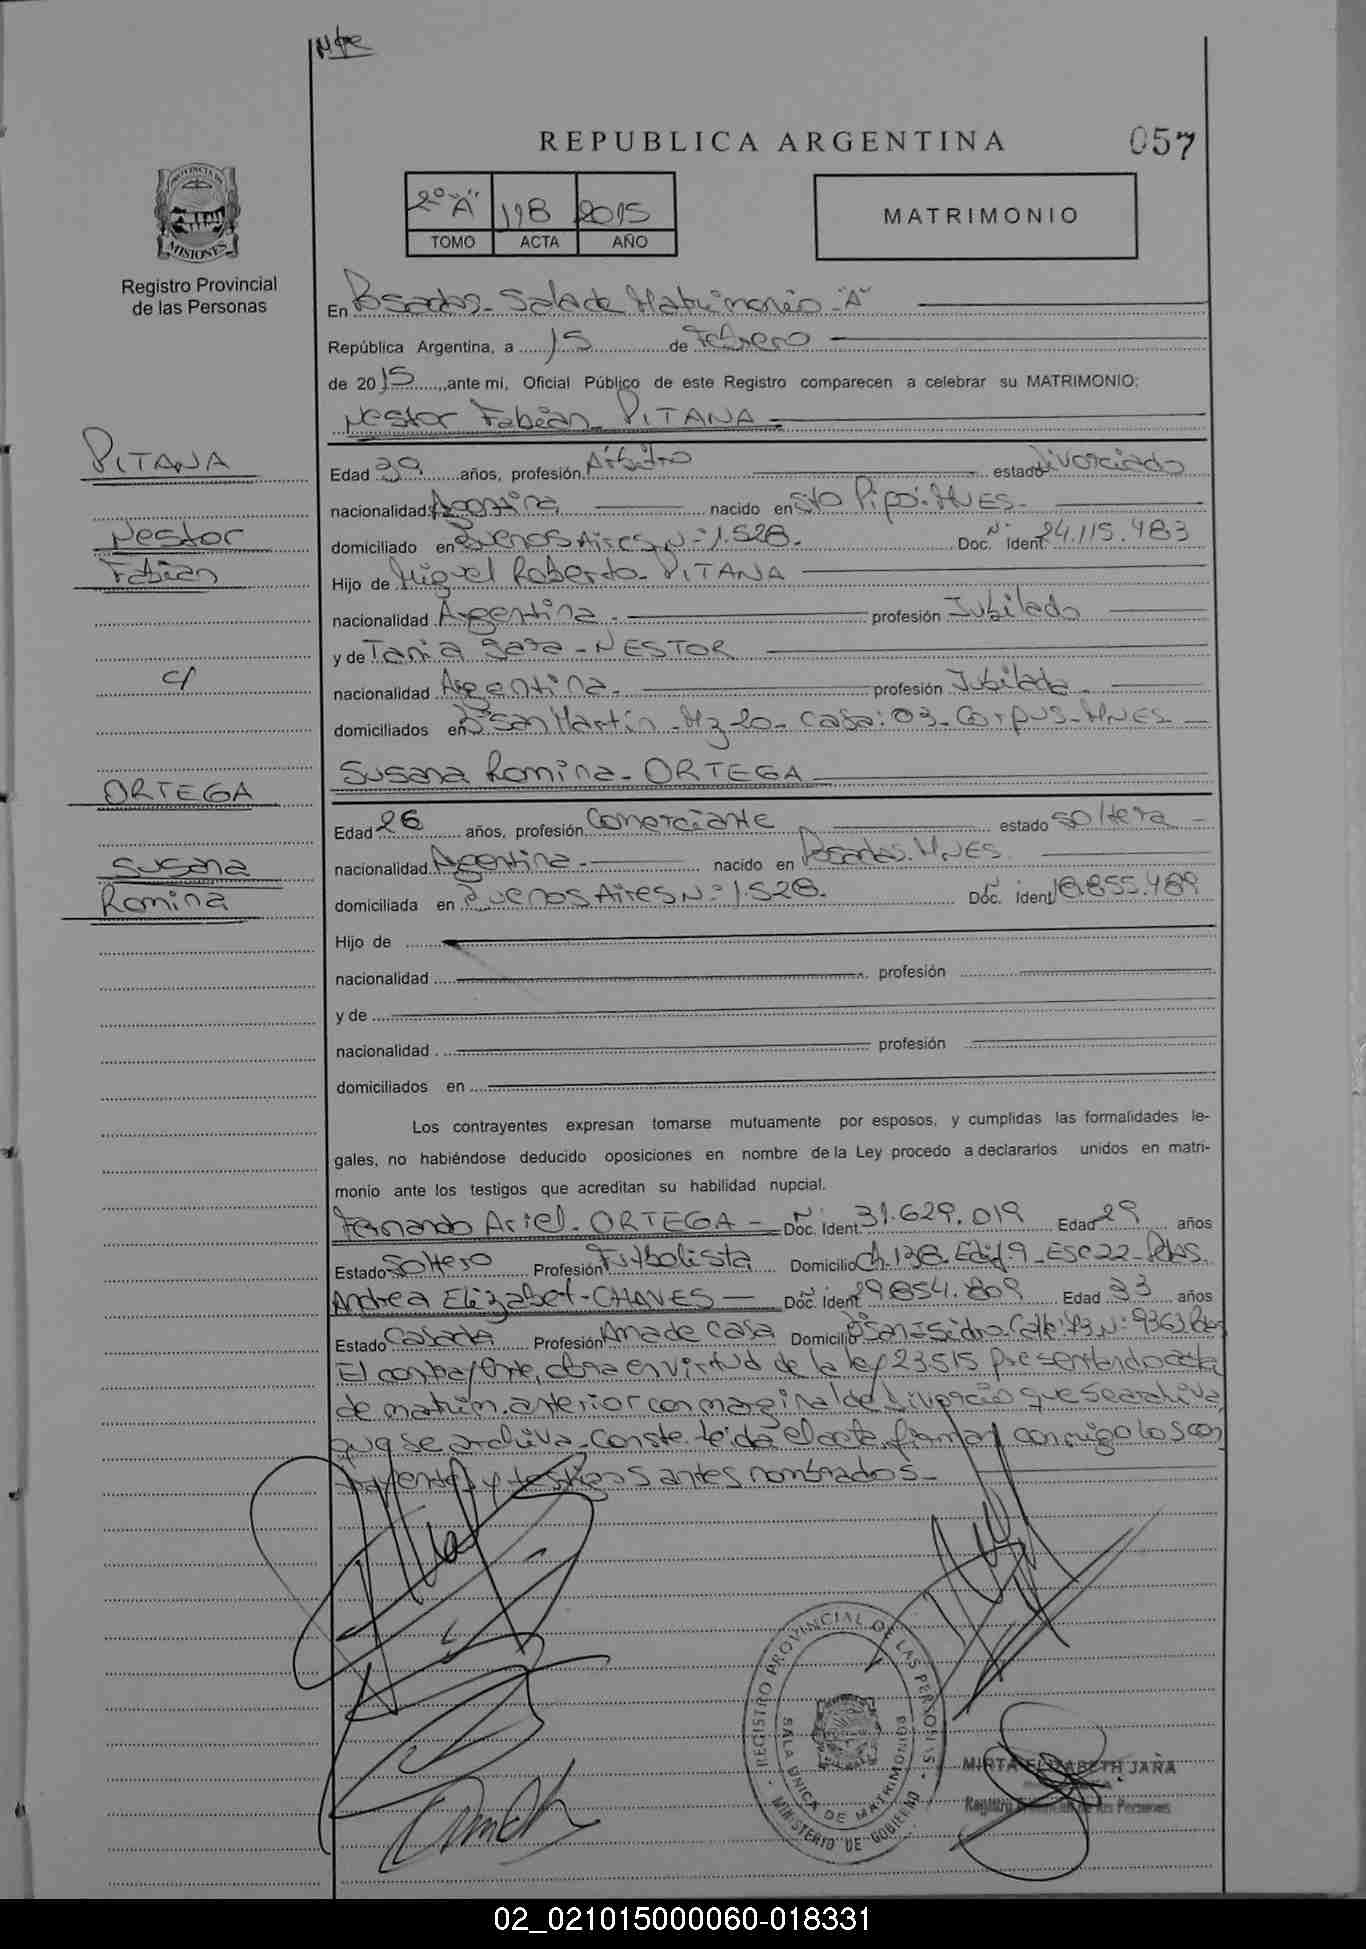 REPUBLICA ARGENTINA
057
PROVINCIA DE
MISIONES
Registro Provincial
de las Personas
2º "A" 118 2015
TOMO ACTA AÑO
MATRIMONIO
En Posadas - Sala de Matrimonio - "A"
República Argentina, a 15 de Febrero
de 2015, ante mi, Oficial Público de este Registro comparecen a celebrar su MATRIMONIO:
Nestor Fabián PITANA
PITANA
Nestor
Fabián
Edad 39 años, profesión Árbitro estado divorciado
nacionalidad Argentina nacido en Sto Pipó. MNES -
domiciliado en Buenos Aires N: 1.528. Doc. Nº Ident 24.115.483
Hijo de Miguel Roberto - PITANA
nacionalidad Argentina - profesión Jubilado
y de Tania Sara - NESTOR
c/
nacionalidad Argentina - profesión Jubilada -
domiciliados en Bº San Martín - Mz 20 - Casa: 03 - Corpus - MNES -
Susana Romina - ORTEGA
ORTEGA
Susana
Romina
Edad 26 años, profesión Comerciante estado soltera -
nacionalidad Argentina - nacido en Posadas. MNES.
domiciliada en Buenos Aires N: 1.528. Doc. Ident 18.855.489
Hijo de
nacionalidad profesión
y de
nacionalidad profesión
domiciliados en
Los contrayentes expresan tomarse mutuamente por esposos, y cumplidas las formalidades le-
gales, no habiéndose deducido oposiciones en nombre de la Ley procedo a declararlos unidos en matri-
monio ante los testigos que acreditan su habilidad nupcial.
Fernando Ariel - ORTEGA - Doc. Ident. 31.629.019 Edad 29 años
Estado Soltero Profesión Futbolista Domicilio Ch. 138. Edif. 9 - Esc 22 - Pdas.
Andrea Elizabet - CHAVES - Doc. Ident 29.854.809 Edad 33 años
Estado Casada Profesión Ama de Casa Domicilio Bº San Isidro - Calle 173 N: 9363 Pdas
El contrayente, obra en virtud de la ley 23.515 presentando acta
de matrim. anterior con marginal de divorcio que se archiva
que se archiva - Conste. leida el acta, firman conmigo los con
trayentes y testigos antes nombrados -
REGISTRO PROVINCIAL DE LAS PERSONAS
SALA UNICA DE MATRIMONIOS
MINISTERIO DE GOBIERNO
MIRTA ELIZABETH JARA
Registro Provincial de las Personas
02_021015000060-018331